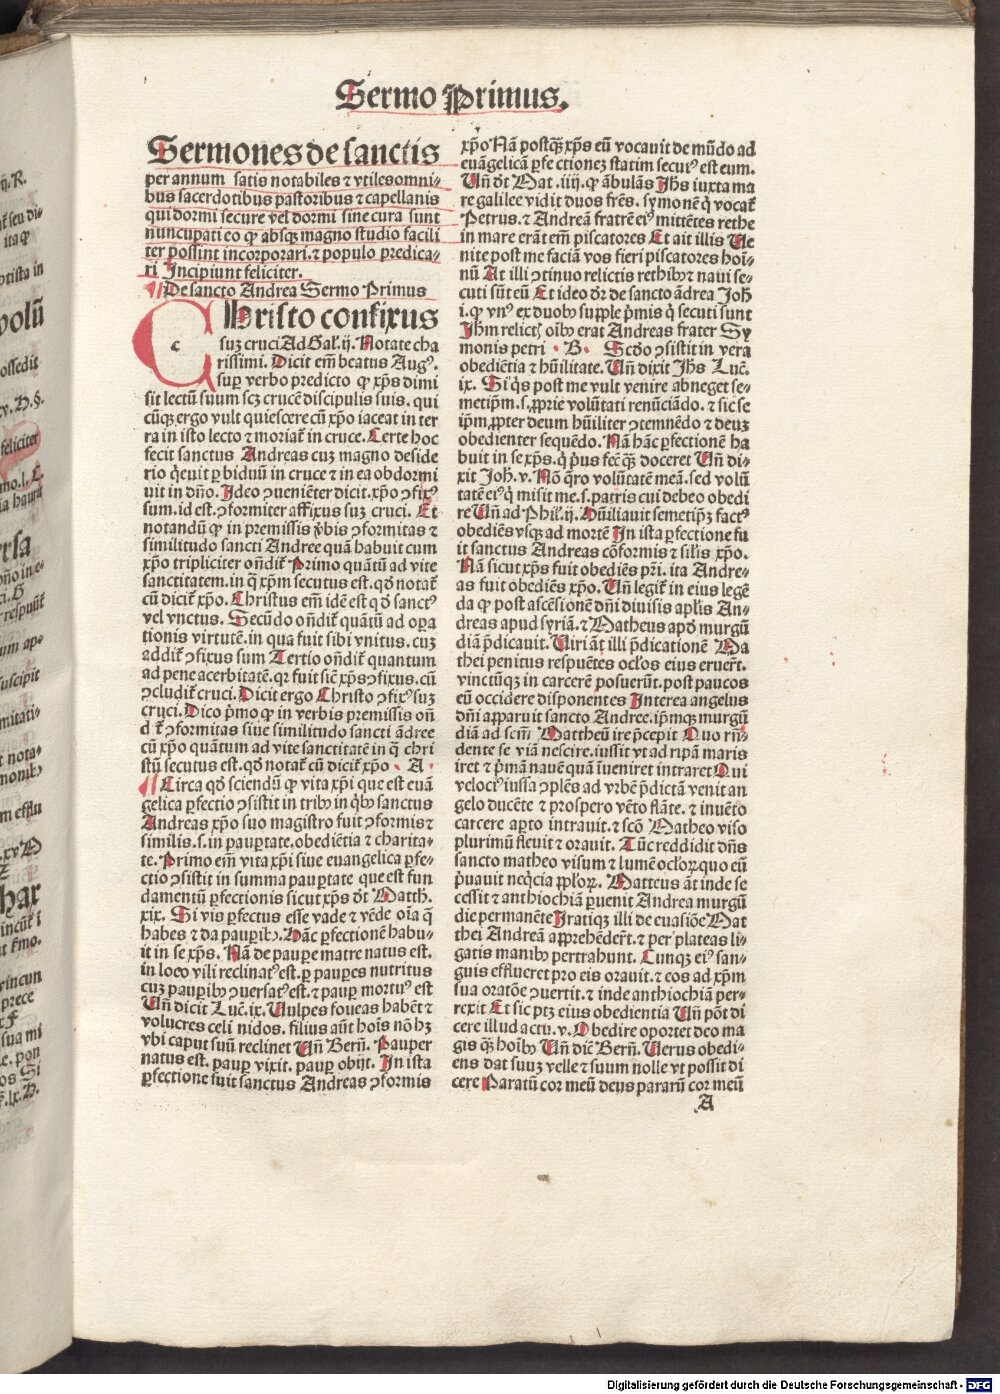 Sermo Primus.
Sermones de sanctis
per annum satis notabiles ⁊ vtiles omni-
bus sacerdotibus pastoribus ⁊ capellanis
qui dormi secure vel dormi sine cura sunt
nuncupati eo ꝙ absqꝫ magno studio facili
ter possint incorporari. ⁊ populo predica-
ri Incipiunt feliciter.
De sancto Andrea Sermo Primus
Christo confixus
suꝫ cruci Ad Gal. ij. Notate cha
rissimi. Dicit em̄ beatus Augꝰ.
suꝑ verbo predicto ꝙ xp̄s dimi
sit lectū suum scꝫ crucē discipulis suis. qui
cūqꝫ ergo vult quiescere cū xp̄o iaceat in ter
ra in isto lecto ⁊ moriat᷑ in cruce. Certe hoc
fecit sanctus Andreas cuꝫ magno deside
rio q̄euit ꝑ biduū in cruce ⁊ in ea obdormi
uit in dn̄o. Ideo ꝯueniēter dicit. xp̄o ꝯfixꝰ
sum. id est. ꝯformiter affixus suꝫ cruci. Et
notandū ꝙ in premissis v̄bis ꝯformitas ⁊
similitudo sancti Andree quā habuit cum
xp̄o tripliciter on̄dit᷑ Primo quātū ad vite
sanctitatem. in q̄ xp̄m secutus est. qd̄ notat᷑
cū dicit᷑ xp̄o. Christus em̄ idē est qd̄ sanctꝰ
vel vnctus. Secūdo on̄dit᷑ quātū ad oꝑa
tionis virtutē. in qua fuit sibi vnitus. cuꝫ
addit᷑ ꝯfixus sum Tertio on̄dit᷑ quantum
ad pene acerbitatē. qꝛ fuit sic̄ xp̄s ꝯfixus. cū
ꝯcludit᷑ cruci. Dicit ergo Christo ꝯfixꝰ suꝫ
cruci. Dico p̄mo ꝙ in verbis premissis on̄
dit᷑ ꝯformitas siue similitudo sancti ādree
cū xp̄o quātum ad vite sanctitatē in q̄ chri
stū secutus est. qd̄ notat᷑ cū dicit᷑ xp̄o · A ·
Circa qd̄ sciendū ꝙ vita xp̄i que est euā
gelica ꝑfectio ꝯsistit in tribꝰ in q̄bꝰ sanctus
Andreas xp̄o suo magistro fuit ꝯformis ⁊
similis. s. in pauꝑtate. obediētia ⁊ charita-
te. Primo em̄ vita xp̄i siue euangelica ꝑfe-
ctio ꝯsistit in summa pauꝑtate que est fun
damentū ꝑfectionis sicut xp̄s dt̄ Matth.
xix. Si vis ꝑfectus esse vade ⁊ vēde oīa q̄
habes ⁊ da pauꝑibꝰ. Hāc ꝑfectionē habu-
it in se xp̄s. Nā de pauꝑe matre natus est.
in loco vili reclinatꝰ est. ꝑ pauꝑes nutritus
cuꝫ pauꝑibꝰ ꝯuersatꝰ est. ⁊ pauꝑ mortuꝰ est
Un̄ dicit Luc̄. ix. Vulpes foueas habēt ⁊
volucres celi nidos. filius aūt hoīs nō hꝫ
vbi caput suū reclinet Un̄ Bern̄. Pauper
natus est. pauꝑ vixit. pauꝑ obijt. In ista
ꝑfectione fuit sanctus Andreas ꝯformis
xp̄o Nā postqꝫ xp̄s eū vocauit de mūdo ad
euāgelicā ꝑfectionē statim secutꝰ est eum.
Un̄ dt̄ Mat. iiij. ꝙ ābulās Jh̄s iuxta ma
re galilee vidit duos fr̄es. symonē q̄ vocat᷑
Petrus. ⁊ Andreā fratrē eiꝰ mittētes rethe
in mare erāt em̄ piscatores Et ait illis Ve
nite post me faciā vos fieri piscatores hoī-
nū At illi ꝯtinuo relictis rethibꝰ ⁊ naui se-
cuti sūt eū Et ideo dr̄ de sancto ādrea Joh̄
i. ꝙ vnꝰ ex duobꝰ supple p̄mis q̄ secuti sunt
Jh̄m relictꝭ oībꝰ erat Andreas frater Sy
monis petri · B · Scd̄o ꝯsistit in vera
obediētia ⁊ hūilitate. Un̄ dixit Jh̄s Luc̄.
ix. Si q̄s post me vult venire abneget se-
metip̄m. s. ꝓprie volūtati renūciādo. ⁊ sic se
ip̄m ꝓpter deum hūiliter ꝯtemnēdo ⁊ deuꝫ
obedienter sequēdo. Nā hāc ꝑfectionē ha
buit in se xp̄s. q̄ p̄us fec̄ qꝫ doceret Un̄ di-
xit Joh̄. v. Nō q̄ro volūtatē meā. sed volū
tatē eiꝰ q̄ misit me. s. patris cui debeo obedi
re Un̄ ad Phil. ij. Hūiliauit semetip̄ꝫ factꝰ
obediēs vsqꝫ ad mortē In ista ꝑfectione fu
it sanctus Andreas cōformis ⁊ silis xp̄o.
Nā sicut xp̄s fuit obediēs pr̄i. ita Andre-
as fuit obediēs xp̄o. Un̄ legit᷑ in eius legē
da ꝙ post ascēsionē dn̄i diuisis apl̄is An-
dreas apud syriā. ⁊ Matheus apd̄ murgū
diā p̄dicauit. Viri āt illi p̄dicationē Ma
thei penitus respuētes oc̄los eius eruerūt.
vinctūqꝫ in carcerē posuerūt. post paucos
eū occidere disponentes Interea angelus
dn̄i apparuit sancto Andree. ip̄mqꝫ murgū
diā ad scm̄ Mattheū ire p̄cepit Quo rn̄-
dente se viā nescire. iussit vt ad ripā maris
iret ⁊ p̄mā nauē quā īueniret intraret Qui
velociꝰ iussa ꝯplēs ad vrbē p̄dictā venit an
gelo ducēte ⁊ prospero vēto flāte. ⁊ inuēto
carcere aꝑto intrauit. ⁊ scō Matheo viso
plurimū fleuit ⁊ orauit. Tūc reddidit dn̄s
sancto matheo visum ⁊ lumē oclorꝫ quo eū
p̄uauit neq̄cia ppl̄orꝫ. Matteus āt inde se
cessit ⁊ anthiochiā ꝑuenit Andrea murgū
die permanēte Iratiqꝫ illi de euasiōe Mat
thei Andreā apprehēderūt. ⁊ per plateas li-
gatis manibꝰ pertrahunt. Cunqꝫ eiꝰ san-
guis efflueret pro eis orauit. ⁊ eos ad xp̄m
sua oratōe ꝯuertit. ⁊ inde anthiochiā per-
rexit Et sic ptꝫ eius obedientia Un̄ pōt di
cere illud actū. v. Obedire oportet deo ma
gis qꝫ hoībꝰ Un̄ dic̄ Bern̄. Verus obedi-
ens dat suuꝫ velle ⁊ suum nolle vt possit di
cere Paratū cor meū deus paratū cor meū
A